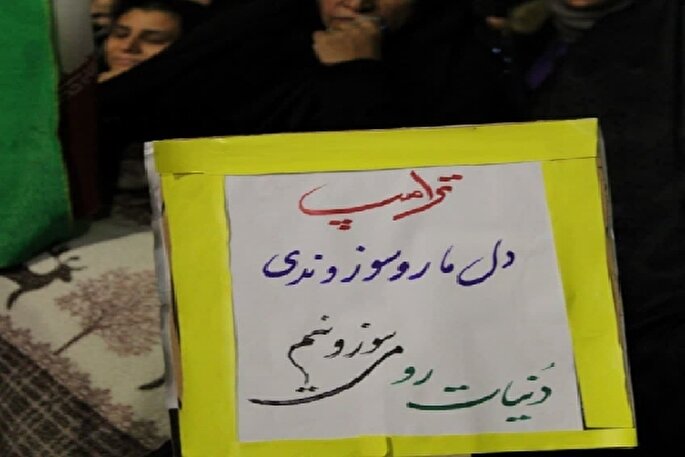 ترامپ
دل ما رو سوزوندی
دُنیات رو می سوزونیم